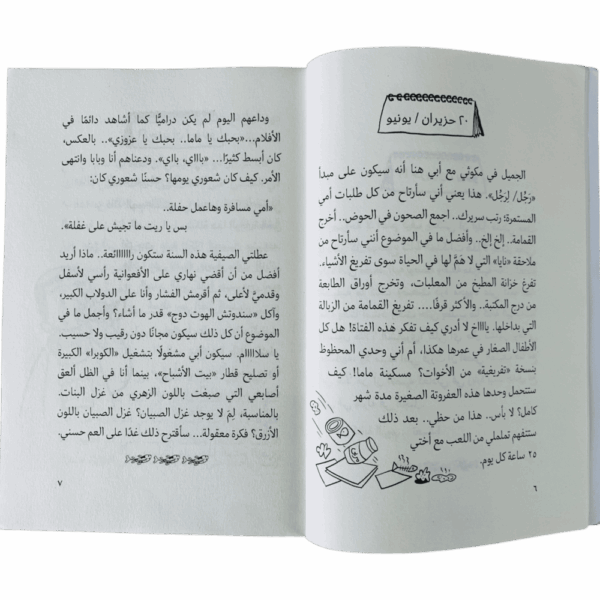 ٢٠ حزيران / يونيو
الجميل في مكوثي مع أبي هنا أنه سيكون على مبدأ
«رَجُل/ لِرَجُل». هذا يعني أنني سأرتاح من كل طلبات أمي
المستمرة: رتب سريرك.. اجمع الصحون في الحوض.. أخرج
القمامة.. إلخ إلخ.. وأفضل ما في الموضوع أنني سأرتاح من
ملاحقة «تايا» التي لا همَّ لها في الحياة سوى تفريغ الأشياء.
تفرغ خزانة المطبخ من المعلبات، وتخرج أوراق الطابعة
من درج المكتبة.. والأكثر قرفًا.... تفريغ القمامة من الزبالة
التي بداخلها. يااااخ لا أدري كيف تفكر هذه الفتاة! هل كل
الأطفال الصغار في عمرها هكذا، أم أني وحدي المحظوظ
بنسخة «تفريغية» من الأخوات؟ مسكينة ماما! كيف
ستتحمل وحدها هذه العفروتة الصغيرة مدة شهر
كامل؟ لا بأس.. هذا من حظي.. بعد ذلك
ستتفهم تململي من اللعب مع أختي
٢٥ ساعة كل يوم.
٦
وداعهم اليوم لم يكن دراميًّا كما أشاهد دائمًا في
الأفلام...«بحبك يا ماما.. بحبك يا عزوزي».. بالعكس،
كان أبسط كثيرًا... «باااي، بااي». ودعناهم أنا وبابا وانتهى
الأمر. كيف كان شعوري يومها؟ حسنًا شعوري كان:
«أمي مسافرة وهاعمل حفلة..
بس يا ريت ما تجيش على غفلة».
عطلتي الصيفية هذه السنة ستكون راااااائعة.. ماذا أريد
أفضل من أن أقضي نهاري على الأفعوانية رأسي لأسفل
وقدميَّ لأعلى، ثم أقرمش الفشار وأنا على الدولاب الكبير،
وآكل «سندوتش الهوت دوج» قدر ما أشاء؟ وأجمل ما في
الموضوع أن كل ذلك سيكون مجانًا دون رقيب ولا حسيب.
يا سلاااام. سيكون أبي مشغولًا بتشغيل «الكوبرا» الكبيرة
أو تصليح قطار «بيت الأشباح»، بينما أنا في الظل ألعق
أصابعي التي صبغت باللون الزهري من غزل البنات.
بالمناسبة، لِمَ لا يوجد غزل الصبيان؟ غزل الصبيان باللون
الأزرق؟ فكرة معقولة... سأقترح ذلك غدًا على العم حسني.
٧